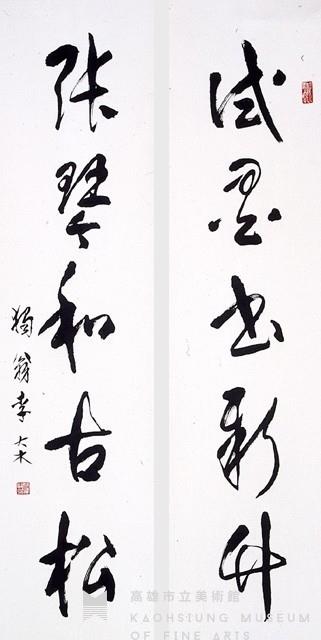 試墨書新竹
張琴和古松
獨翁李大木
高雄市立美術館
KAOHSIUNG MUSEUM
OF FINE ARTS